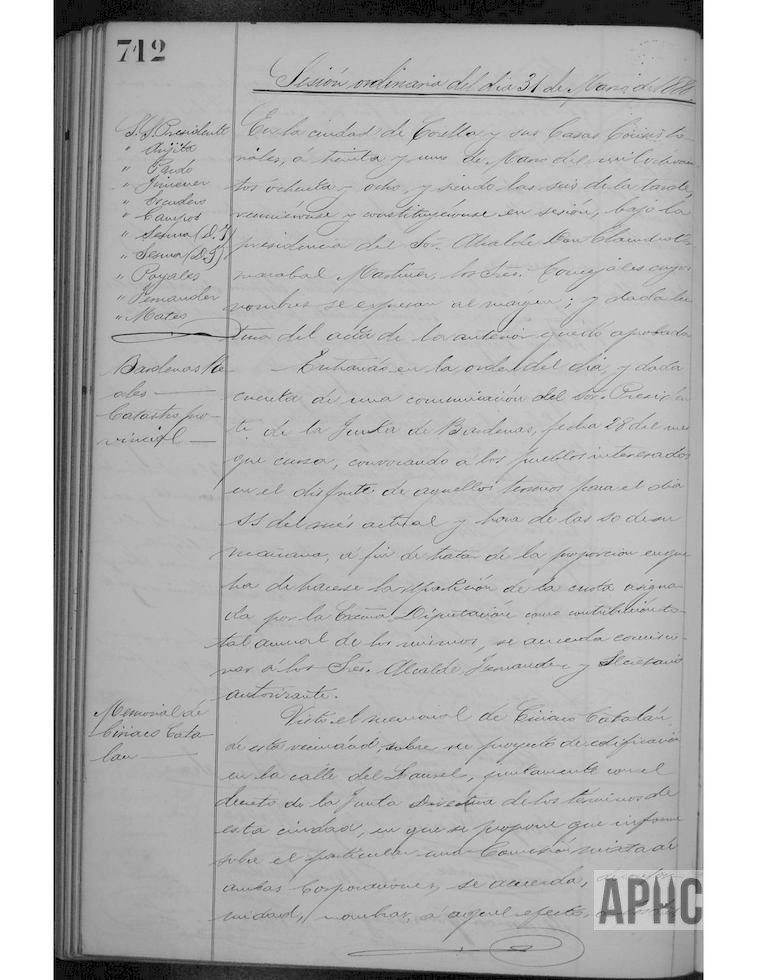 712
Sesión ordinaria del dia 31 de Marzo de 1888.
S. S. Presidente
" Arijita
" Pardo
" Jimenez
" Escudero
" Campos
" Sesma (D. J)
" Sesma (D. J)
" Poyales
" Fernandez
" Mateo
En la ciudad de Corella y sus Casas Consisto-
riales, á treinta y uno de Marzo del mil ochocien
tos ochenta y ocho, y siendo las seis de la tarde,
reuniéronse y constituyéronse en sesión, bajo la
presidencia del Sor. Alcalde Don Claudio
Martinez, los Sres. Concejales cuyos
nombres se expresan al margen; y dada lec
tura del acta de la anterior quedó aprobada
Bardenas Re
ales
Catastro pro-
vincial
Entrando en la orden del dia, y dada
cuenta de una comunicación del Sor. Presiden
te de la Junta de Bardenas, fecha 28 del mes
que cursa, convocando á los pueblos interesados
en el disfrute de aquellos terrenos para el dia
del més actual y hora de las 10 de su
mañana, á fin de tratar de la proporcion en que
ha de hacerse la repartición de la cuota asigna-
da por la Excma. Diputación como contribución to-
tal annual de los mismos, se acuerda comisio-
nar á los Sres. Alcalde, Fernandez y Secretario
autorizante.
Memorial de
Ciriaco Cata-
lan
Visto el memorial de Ciriaco Catalán,
de esta vecindad, sobre un proyecto de edificación
en la calle del Laurel, juntamente con el
decreto de la Junta Directiva de los términos de
esta ciudad, en que se propone que informe
sobre el particular una Comisión mixta de
ambas Corporaciones, se acuerda,
midad, nombrar, á aquel efecto,
APHC